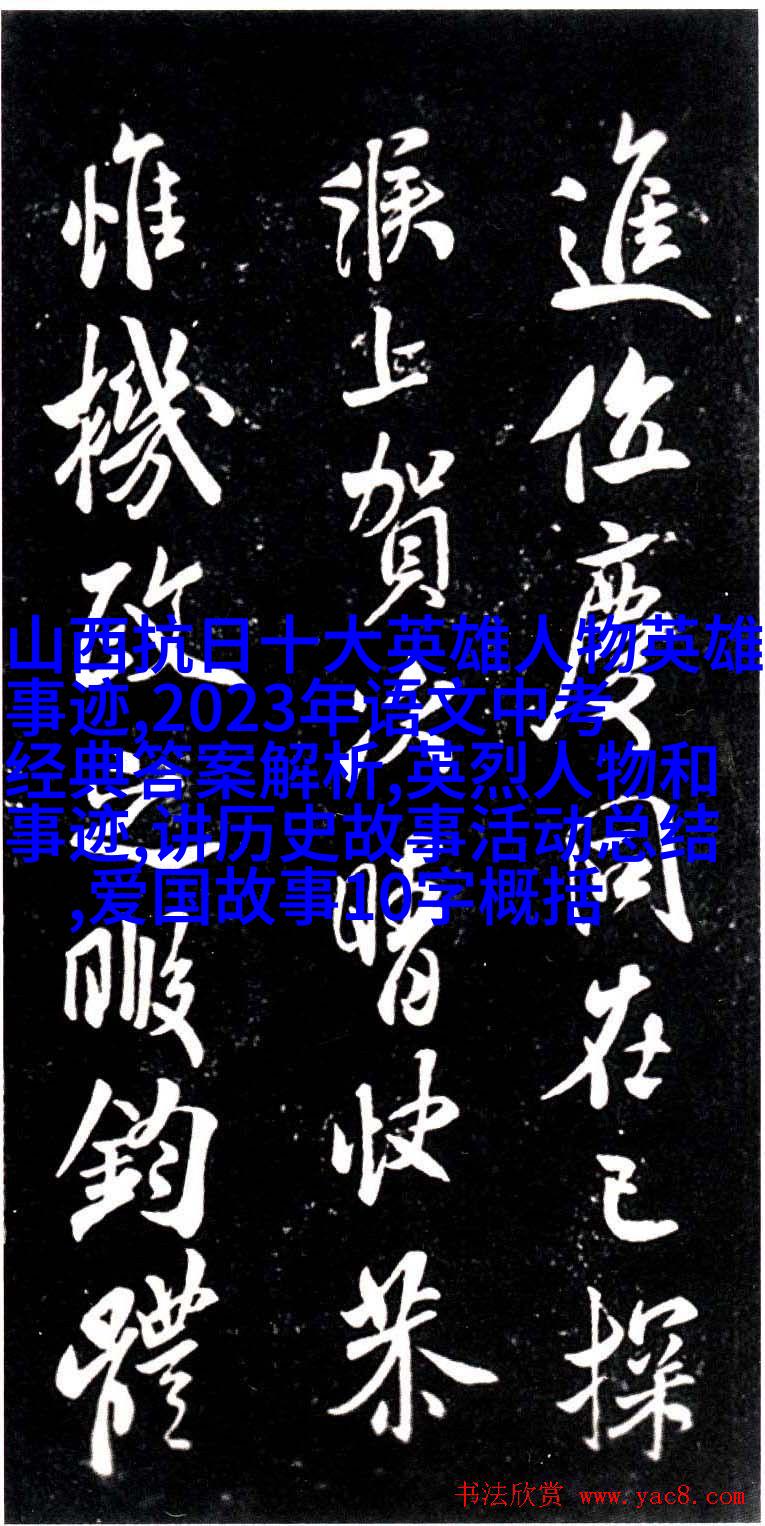 進位慶同在己探
候上賀人晴快恭
惟機政之暇鈞體
山西抗日十大英雄人物英雄
事迹,2023年语文中考
经典答案解析,英烈人物和
事迹,讲历史故事活动总结
,爱国故事10字概括
书法欣赏 www.yac8.com